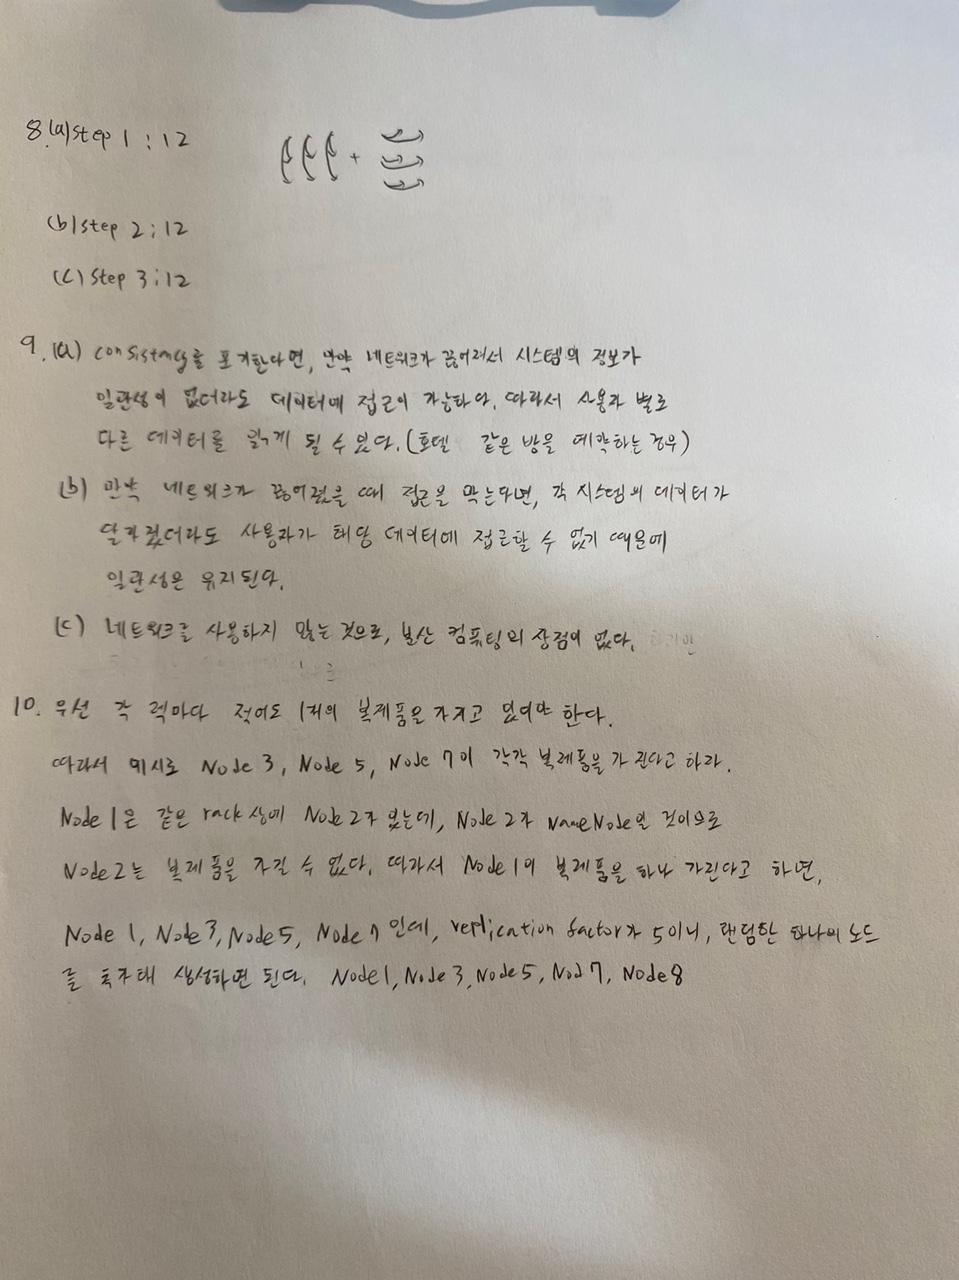 8.(a) step 1 : 12
(b) step 2 : 12
(c) step 3 : 12
9. (a) consistency를 포기한다면, 만약 네트워크가 끊어져서 시스템의 정보가
일관성이 없더라도 데이터에 접근이 가능하다. 따라서 사용자 별로
다른 데이터를 읽게 될 수 있다. (호텔 같은 방을 예약하는 경우)
(b) 만약 네트워크가 끊어졌을 때 접근을 막는다면, 각 시스템의 데이터가
달라졌더라도 사용자가 해당 데이터에 접근할 수 없기 때문에
일관성은 유지된다.
(c) 네트워크를 사용하지 않는 것으로, 분산 컴퓨팅의 장점이 없다.
10. 우선 각 렉마다 적어도 1개의 복제품을 가지고 있어야 한다.
따라서 예시로 Node 3, Node 5, Node 7이 각각 복제품을 가진다고 하자.
Node 1은 같은 rack 상에 Node 2가 있는데, Node 2가 NameNode일 것이므로
Node 2는 복제품을 가질 수 없다. 따라서 Node 1의 복제품을 하나 가진다고 하면,
Node 1, Node 3, Node 5, Node 7 인데, replication factor가 5이니, 랜덤한 하나의 노드
를 선택해 생성하면 된다. Node 1, Node 3, Node 5, Nod 7, Node 8